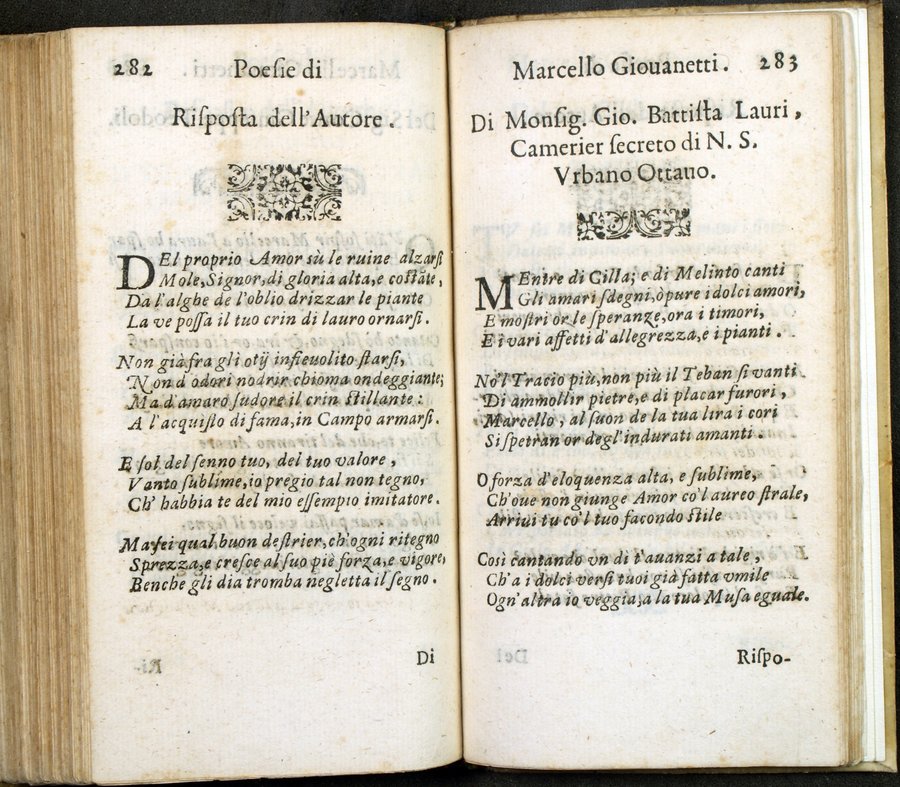 282 Poeſie di
Riſpoſta dell'Autore.
DEl proprio Amor sù le ruine alzarſi
Mole, Signor, di gloria alta, e coſtāte,
Da l'alghe de l'oblio drizzar le piante
La ve poſſa il tuo crin di lauro ornarſi.
Non già fra gli otij infieuolito ſtarſi,
Non d'odori nodrir chioma ondeggiante;
Ma d'amaro ſudore il crin ſtillante:
A l'acquiſto di fama, in Campo armarſi.
E ſol del ſenno tuo, del tuo valore,
Vanto ſublime, io pregio tal non tegno,
Ch' habbia te del mio eſſempio imitatore.
Ma ſei qual buon deſtrier, ch'ogni ritegno
Sprezza, e creſce al ſuo piè forza, e vigore,
Benche gli dia tromba negletta il ſegno.
Di
Marcello Giouanetti. 283
Di Monſig. Gio. Battiſta Lauri,
Camerier ſecreto di N. S.
Vrbano Ottauo.
MEntre di Cilla; e di Melinto canti
Gli amari ſdegni, ò pure i dolci amori,
E moſtri or le ſperanze, ora i timori,
E i vari affetti d'allegrezza, e i pianti.
No'l Tracio più, non più il Teban ſi vanti
Di ammollir pietre, e di placar furori,
Marcello, al ſuon de la tua lira i cori
Si ſpetran or degl'indurati amanti.
O forza d'eloquenza alta, e ſublime,
Ch'oue non giunge Amor co'l aureo ſtrale,
Arriui tu co'l tuo facondo ſtile
Così cantando vn dì t'auanzi a tale,
Ch'a i dolci verſi tuoi già fatta vmile
Ogn'altra io veggia, a la tua Muſa eguale.
Riſpo-